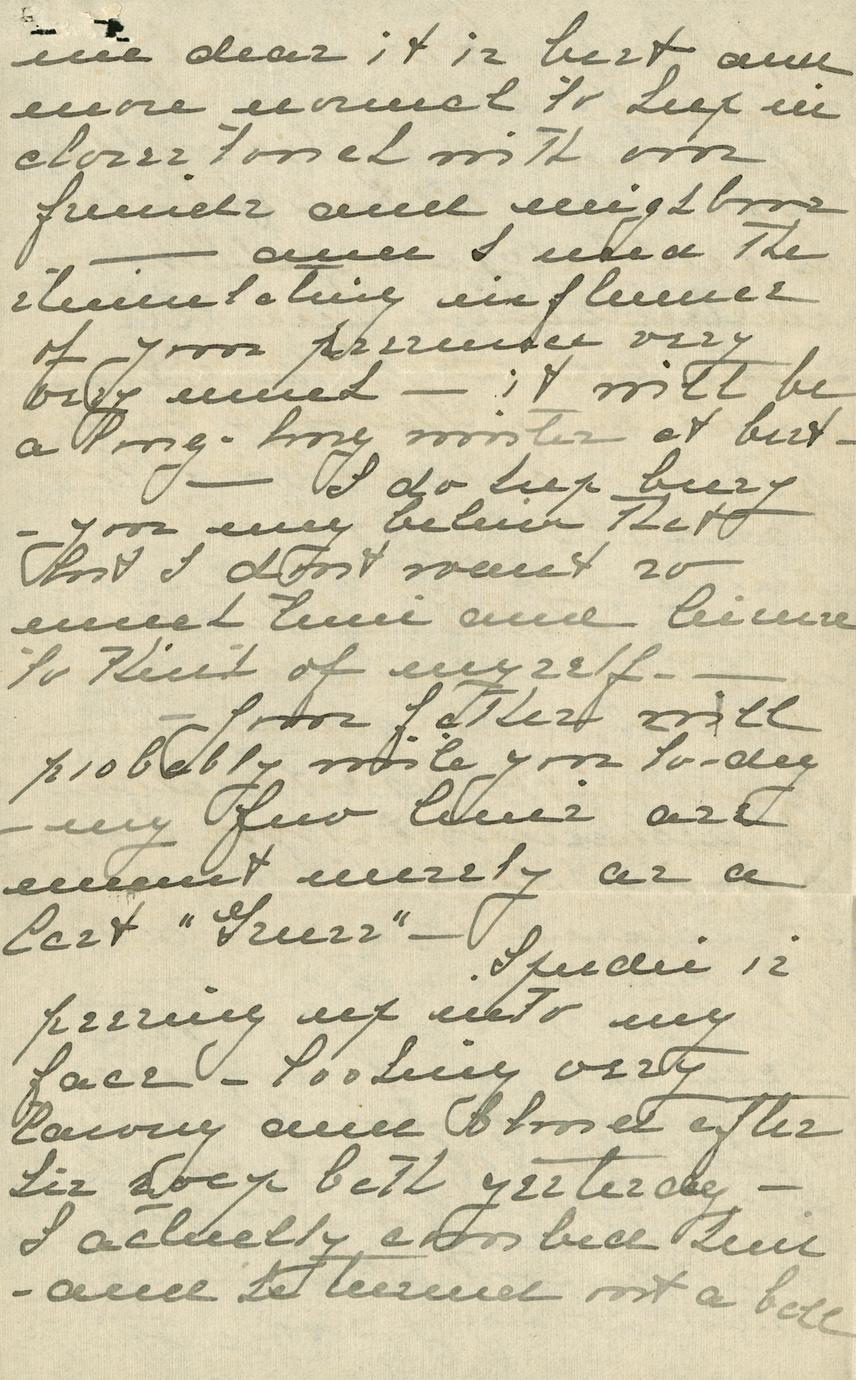 me dear it is best and
more normal to keep in
closer touch with our
friends and neighbors
— and I need the
stimulating influence
of your presence very
very much — it will be
a long-long winter at best -
— I do keep busy
- you may believe that
but I don't want so
much time and leisure
to think of myself. —
- Your father will
probably write you to-day
- my few lines are
meant merely as a
last "Guess" —
Spudie is
peering up into my
face - looking very
and after
his soap bath yesterday -
I actually combed him
- and he turned out a